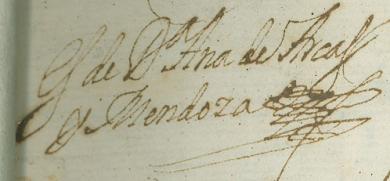 G de Dª Ana de Arcas
y Mendoza